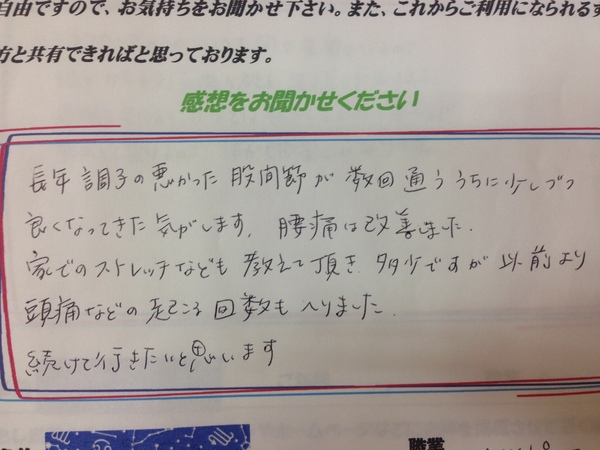 自由ですので、お気持ちをお聞かせ下さい。また、これからご利用になられる
方と共有できればと思っております。
感想をお聞かせください
長年調子の悪かった股間節が数回通ううちに少しづつ
良くなってきた気がします。腰痛は改善ました.
家でのストレッチなども教えて頂き、多少ですが以前より
頭痛などの起こる回数もへりました.
続けて行きたいと思います
職業